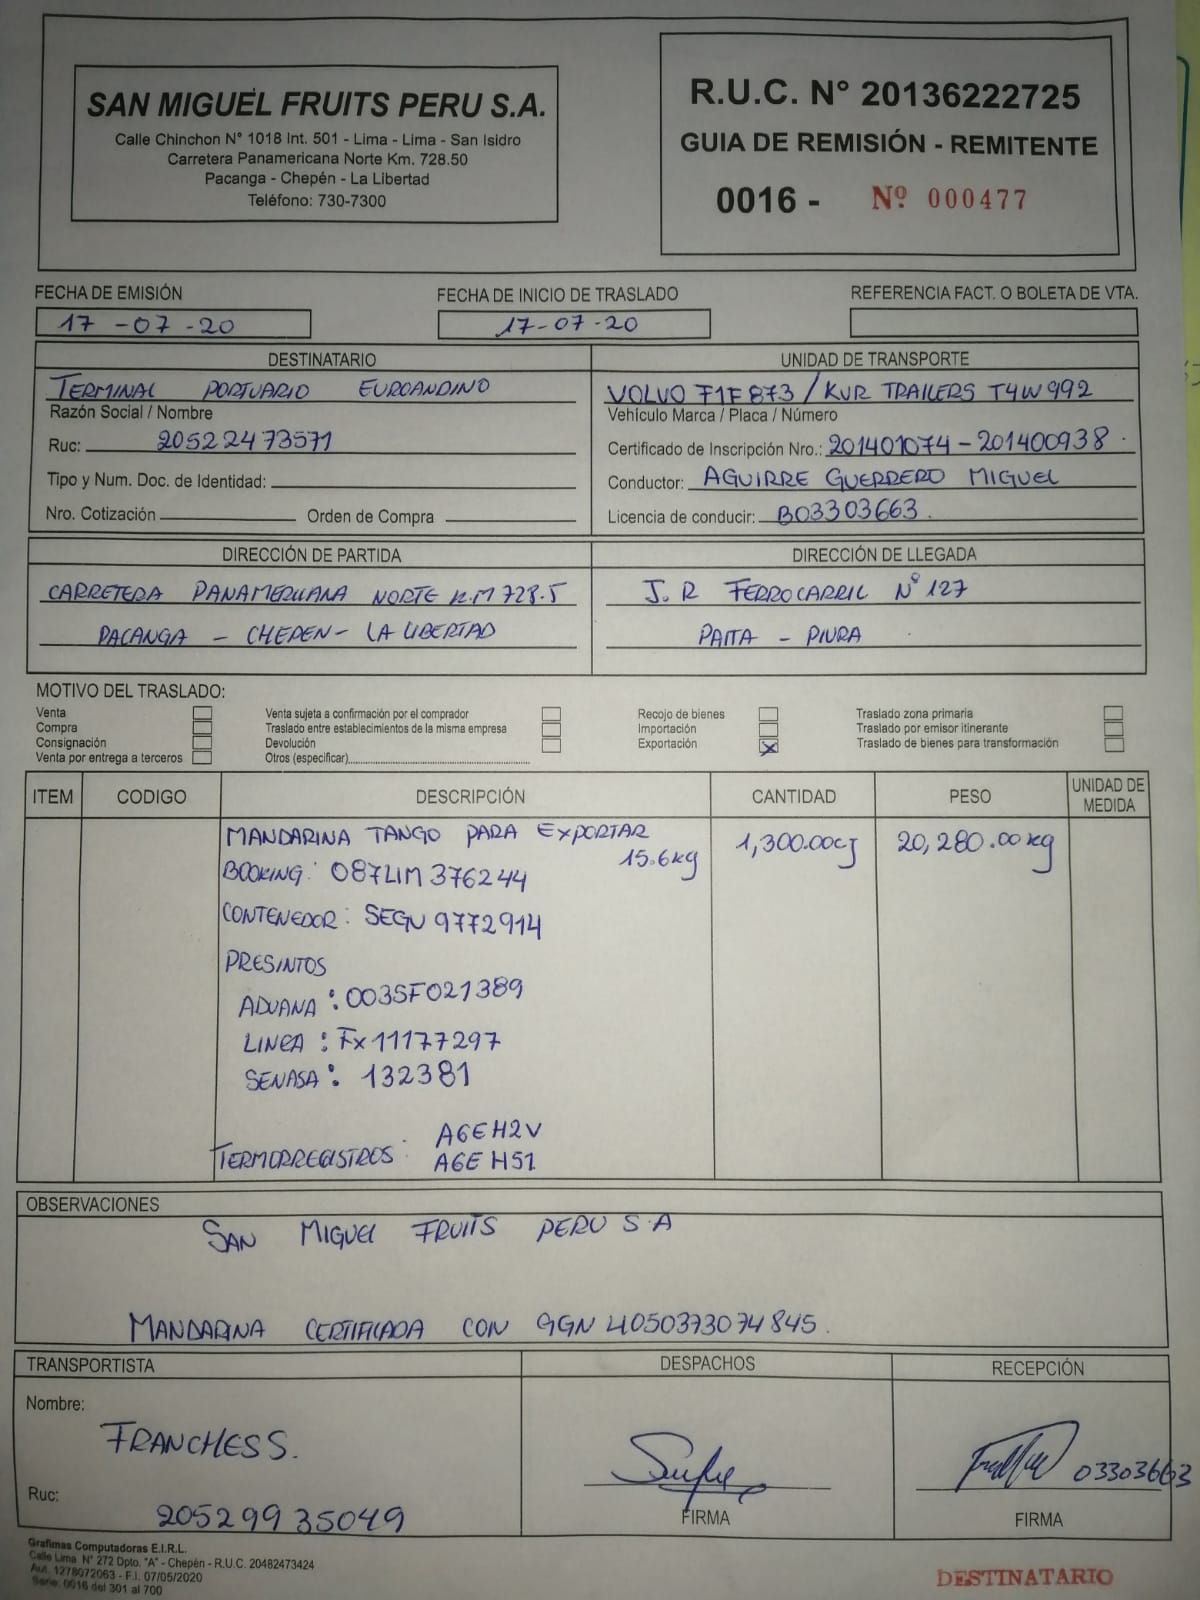 SAN MIGUEL FRUITS PERU S.A.
Calle Chinchon N° 1018 Int. 501 - Lima - Lima - San Isidro
Carretera Panamericana Norte Km. 728.50
Pacanga - Chepén - La Libertad
Teléfono: 730-7300
R.U.C. N° 20136222725
GUIA DE REMISIÓN - REMITENTE
0016 - Nº 000477
FECHA DE EMISIÓN
17-07-20
FECHA DE INICIO DE TRASLADO
17-07-20
REFERENCIA FACT. O BOLETA DE VTA.
DESTINATARIO
TERMINAL PORTUARIO EUROANDINO
Razón Social / Nombre
Ruc: 20522473571
Tipo y Num. Doc. de Identidad:
Nro. Cotización Orden de Compra
UNIDAD DE TRANSPORTE
VOLVO F1F 873 / KUR TRAILERS T4W992
Vehículo Marca / Placa / Número
Certificado de Inscripción Nro.: 201401074-201400938.
Conductor: AGUIRRE GUERRERO MIGUEL
Licencia de conducir: B03303663.
DIRECCIÓN DE PARTIDA
CARRETERA PANAMERICANA NORTE K.M 728.5
PACANGA - CHEPEN - LA LIBERTAD
DIRECCIÓN DE LLEGADA
J.R FERROCARRIL N° 127
PAITA - PIURA
MOTIVO DEL TRASLADO:
Venta
Compra
Consignación
Venta por entrega a terceros
Venta sujeta a confirmación por el comprador
Traslado entre establecimientos de la misma empresa
Devolución
Otros (especificar)
Recojo de bienes
Importación
Exportación X
Traslado zona primaria
Traslado por emisor itinerante
Traslado de bienes para transformación
ITEM CODIGO DESCRIPCIÓN CANTIDAD PESO UNIDAD DE MEDIDA
MANDARINA TANGO PARA EXPORTAR 1,300.00cj 20,280.00 kg
15.6kg
BOOKING: 087LIM376244
CONTENEDOR: SEGU 9772914
PRESINTOS
ADUANA: 003SF021389
LINEA: Fx11177297
SENASA: 132381
TERMORREGISTROS: A6EH2V
A6E H51
OBSERVACIONES
SAN MIGUEL FRUITS PERU S.A
MANDARINA CERTIFICADA CON GGN 4050373074845.
TRANSPORTISTA
Nombre:
FRANCHESS.
Ruc:
20529935049
DESPACHOS
FIRMA
RECEPCIÓN
03303663
FIRMA
Grafimas Computadoras E.I.R.L.
Calle Lima N° 272 Dpto. "A" - Chepén - R.U.C. 20482473424
Aut. 1278072063 - F.I. 07/05/2020
Serie: 0016 del 301 al 700
DESTINATARIO